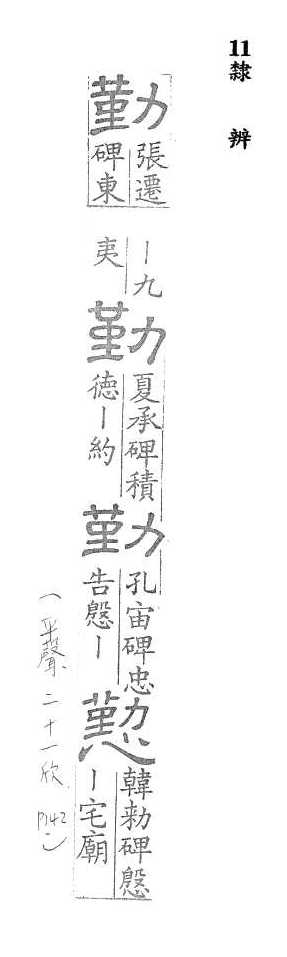 11隸 辨
勤
張遷
碑東
｜九
夷
勤
夏承碑積
德｜約
勤
孔宙碑忠
告慇｜
懃
韓勑碑慇
｜宅廟
(平聲、二十一欣 P142)